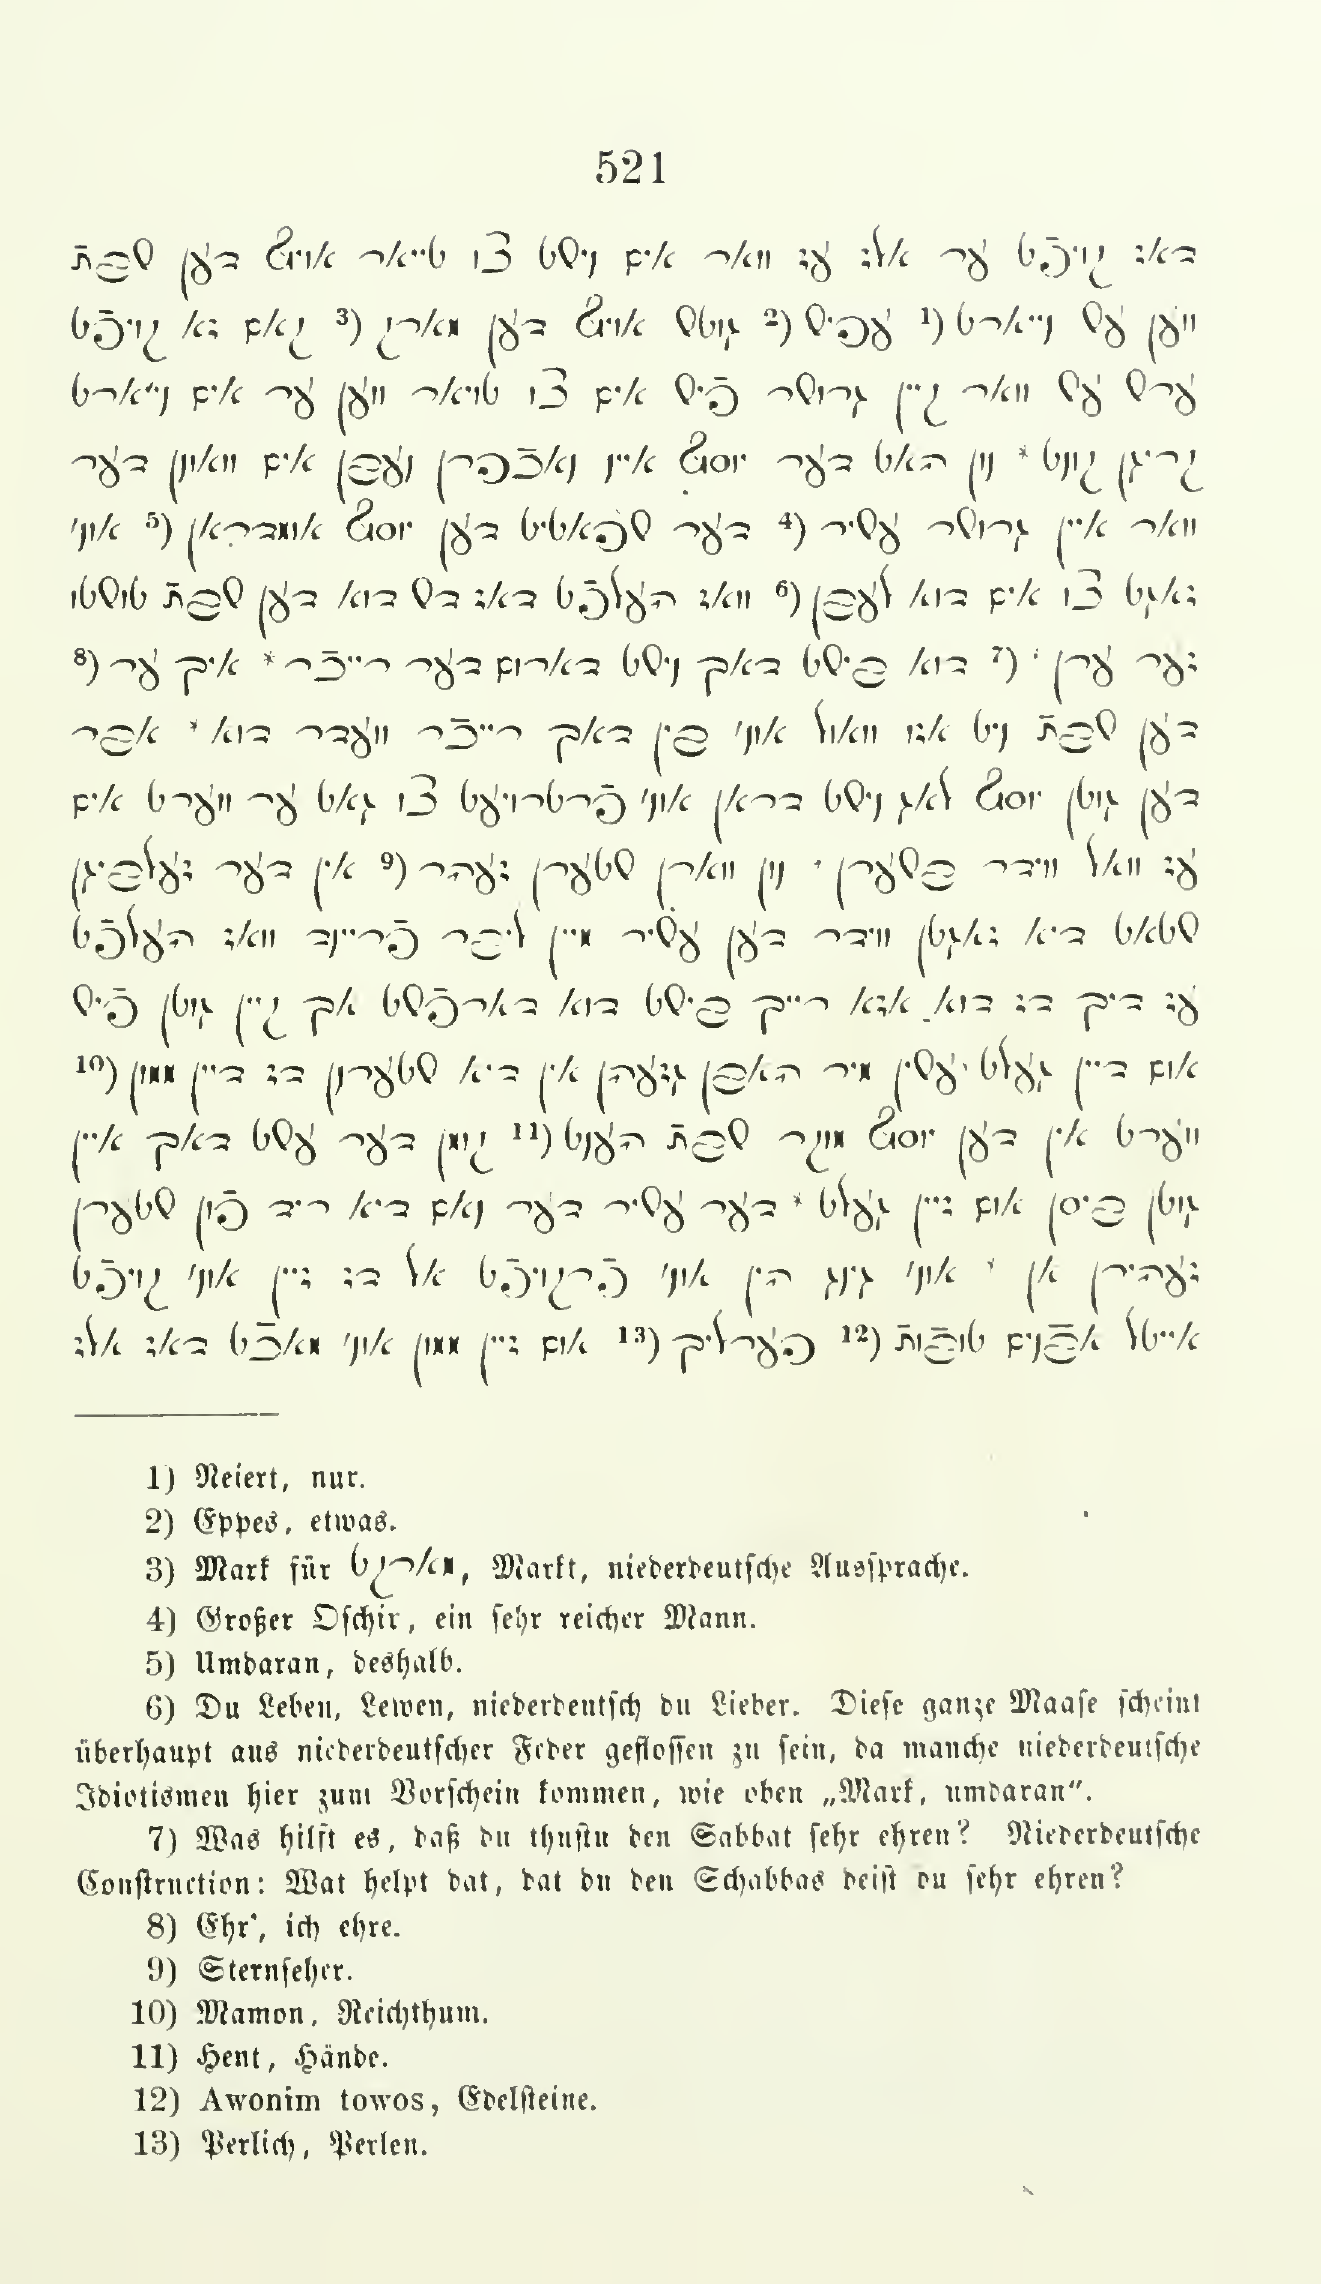 521
דאז קויפֿט ער אלז עז וואר אים נישט צו טייאר אויף דען שבתֿ
ווען עש נייארט (1 עפיש (2 גוטש אויף דען מארק (3 קאם זא קויפֿט
ערש עש וואר קיין גרושר פֿיש אים צו טויאר ווען ער אים נייארט
קריגן קונט * נון האט דער יוסף איין נאכֿפרן נעבן אים וואונן דער
וואר איין גרושר עשיר (4 דער שפאטיט דען יוסף אומדראן (5 אונ׳
זאגט צו אים דוא לעבן (6 וואז העלפֿט דאז דש דוא דען שבתֿ טושטו
זער ערן · (7 דוא בישט דאך נישט דארום דער רייכֿר * איך ער (8
דען שבתֿ ניט אזו וואול אונ׳ בין דאך רייכֿר וועדר דוא * אבר
דען גוטן יוסף לאג נישט דראן אונ׳ פֿרטרויעט צו גאט ער ווערט אים
עז וואל ווידר בשערן · נון ווארן שטערן זעהר (9 אין דער זעלביגן
שטאט דיא זאגטן ווידר דען עשיר מיין ליבר פֿריינד וואז העלפֿט
עז דיך דז דוא אזא רייך בישט דוא דארפֿשט אך קיין גוטן פֿיש
אום דיין געלט עשין מיר האבן גזעהן אין דיא שטערנן דז דיין ממון (10
ווערט אין דען יוסף מוקר שבתֿ הענט (11 קומן דער עשט דאך איין
גוטן ביסן אום זיין געלט * דער עשיר דער נאם דיא ריד פֿון שטערן
זעהירן אן * אונ׳ גינג הין אונ׳ פֿרקויפֿט אל דז זיין אונ׳ קויפֿט
אייטל אבֿנים טובֿותֿ (12 פערליך (13 אום זיין ממון אונ׳ מאכֿט דאז אלז
1) Neiert, nur.
2) Eppes, etwas.
3) Mark für מארקט, Markt, niederdeutsche Aussprache.
4) Großer Oschir, ein sehr reicher Mann.
5) Umdaran, deshalb.
6) Du Leben, Lewen, niederdeutsch du Lieber. Diese ganze Maase scheint
überhaupt aus niederdeutscher Feder geflossen zu sein, da manche niederdeutsche
Idiotismen hier zum Vorschein kommen, wie oben „Mark, umdaran“.
7) Was hilft es, daß du thustu den Sabbat sehr ehren? Niederdeutsche
Construction: Wat helpt dat, dat du den Schabbas deist du sehr ehren?
8) Ehr', ich ehre.
9) Sternseher.
10) Mamon, Reichthum.
11) Hent, Hände.
12) Awonim towos, Edelsteine.
13) Perlich, Perlen.